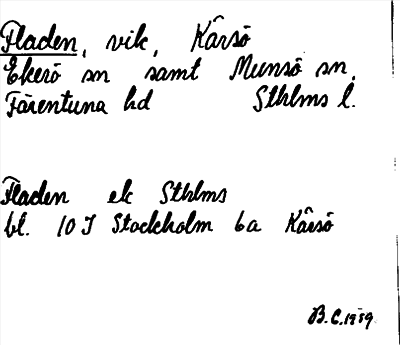 Fladen, vik, Kärsö
Ekerö sn samt Munsö sn,
Färentuna hd Sthlms l.
Fladen ek Sthlms
bl. 10 I Stockholm 6a Kärsö
B.C. 1959.